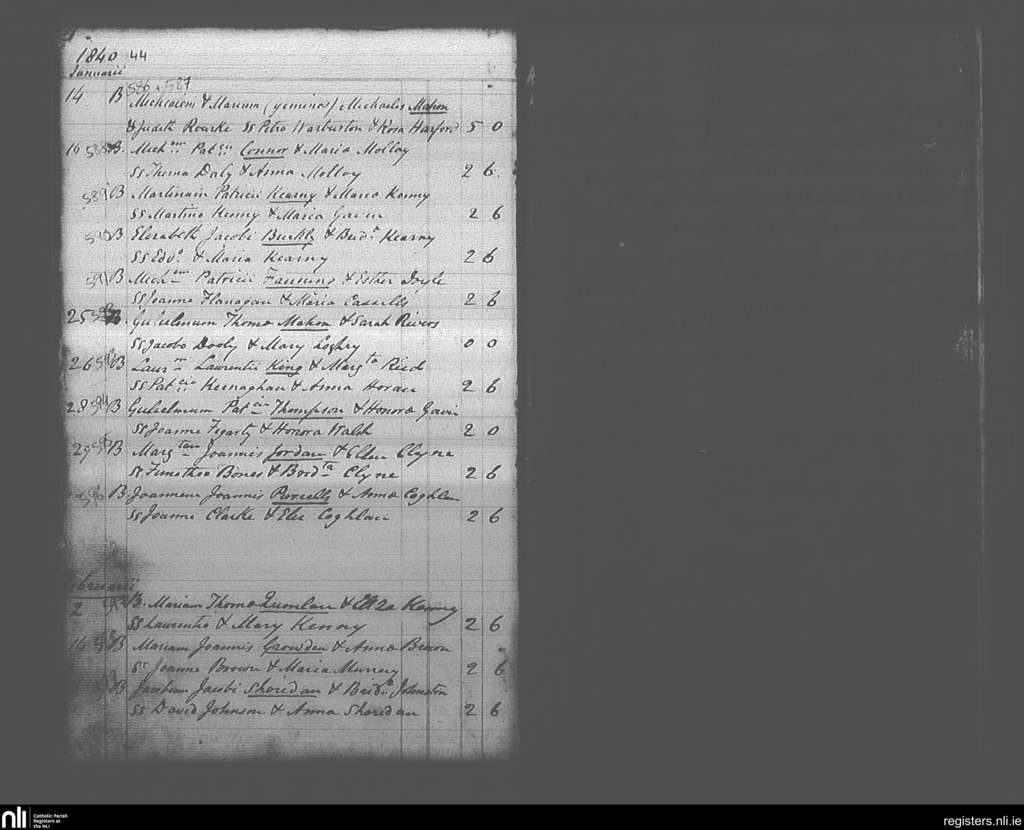 1840 44
Januarii
586 & 587
14 B Michaelem & Mariam (geminos) Michaelis Mahon
& Judith Rourke SS Petro Warburton & Rosa Harford 5 0
16 588 B. Mich.em Pat.cii Connor & Maria Molloy
SS Thoma Daly & Anna Molloy 2 6.
589 B Martinum Patricii Kearny & Maria Kenny
SS Martino Kenny & Maria Gavin 2 6
590 B Elizabeth Jacobi & Brid.t Kearny
SS Edv.o & Maria Kearny 2 6
591 B Mich.em Patricii Fanning & Esther Doyle
SS Joanne Flanagan & Maria Cassells 2 6
25 592 B. Gulielmum Thomæ Mahon & Sarah Rivers
SS Jacobo Dooly & Mary 0 0
26 593 B Laur.m Laurentii King & Marg.ta Ried
SS Pat.cio Kernaghan & Anna Horan 2 6
28 594 B Gulielmum Pat.cii Thompson & Honora Gavin
SS Joanne Fegarty & Honora Walsh 2 0
29 595 B Marg.tam Joannis Jordan & Ellen Clyne
SS Timotheo Bones & Brid.ta Clyne 2 6
596 B. Joannem Joannis Purcell & Anna Coghlan
SS Joanne Clarke & Coghlan 2 6
Februarii
2 B. Mariam Thomæ Quinlan & Eliza Kenny
SS Laurentio & Mary Kenny 2 6
14 B Mariam Joannis Growden & Anna Brown
SS Joanne Brown & Maria Murray 2 6
B Jacobum Jacobi Sheridan & Brid.ta Johnston
SS David Johnson & Anna Sheridan 2 6
nli Catholic Parish
Registers at
the NLI
registers.nli.ie